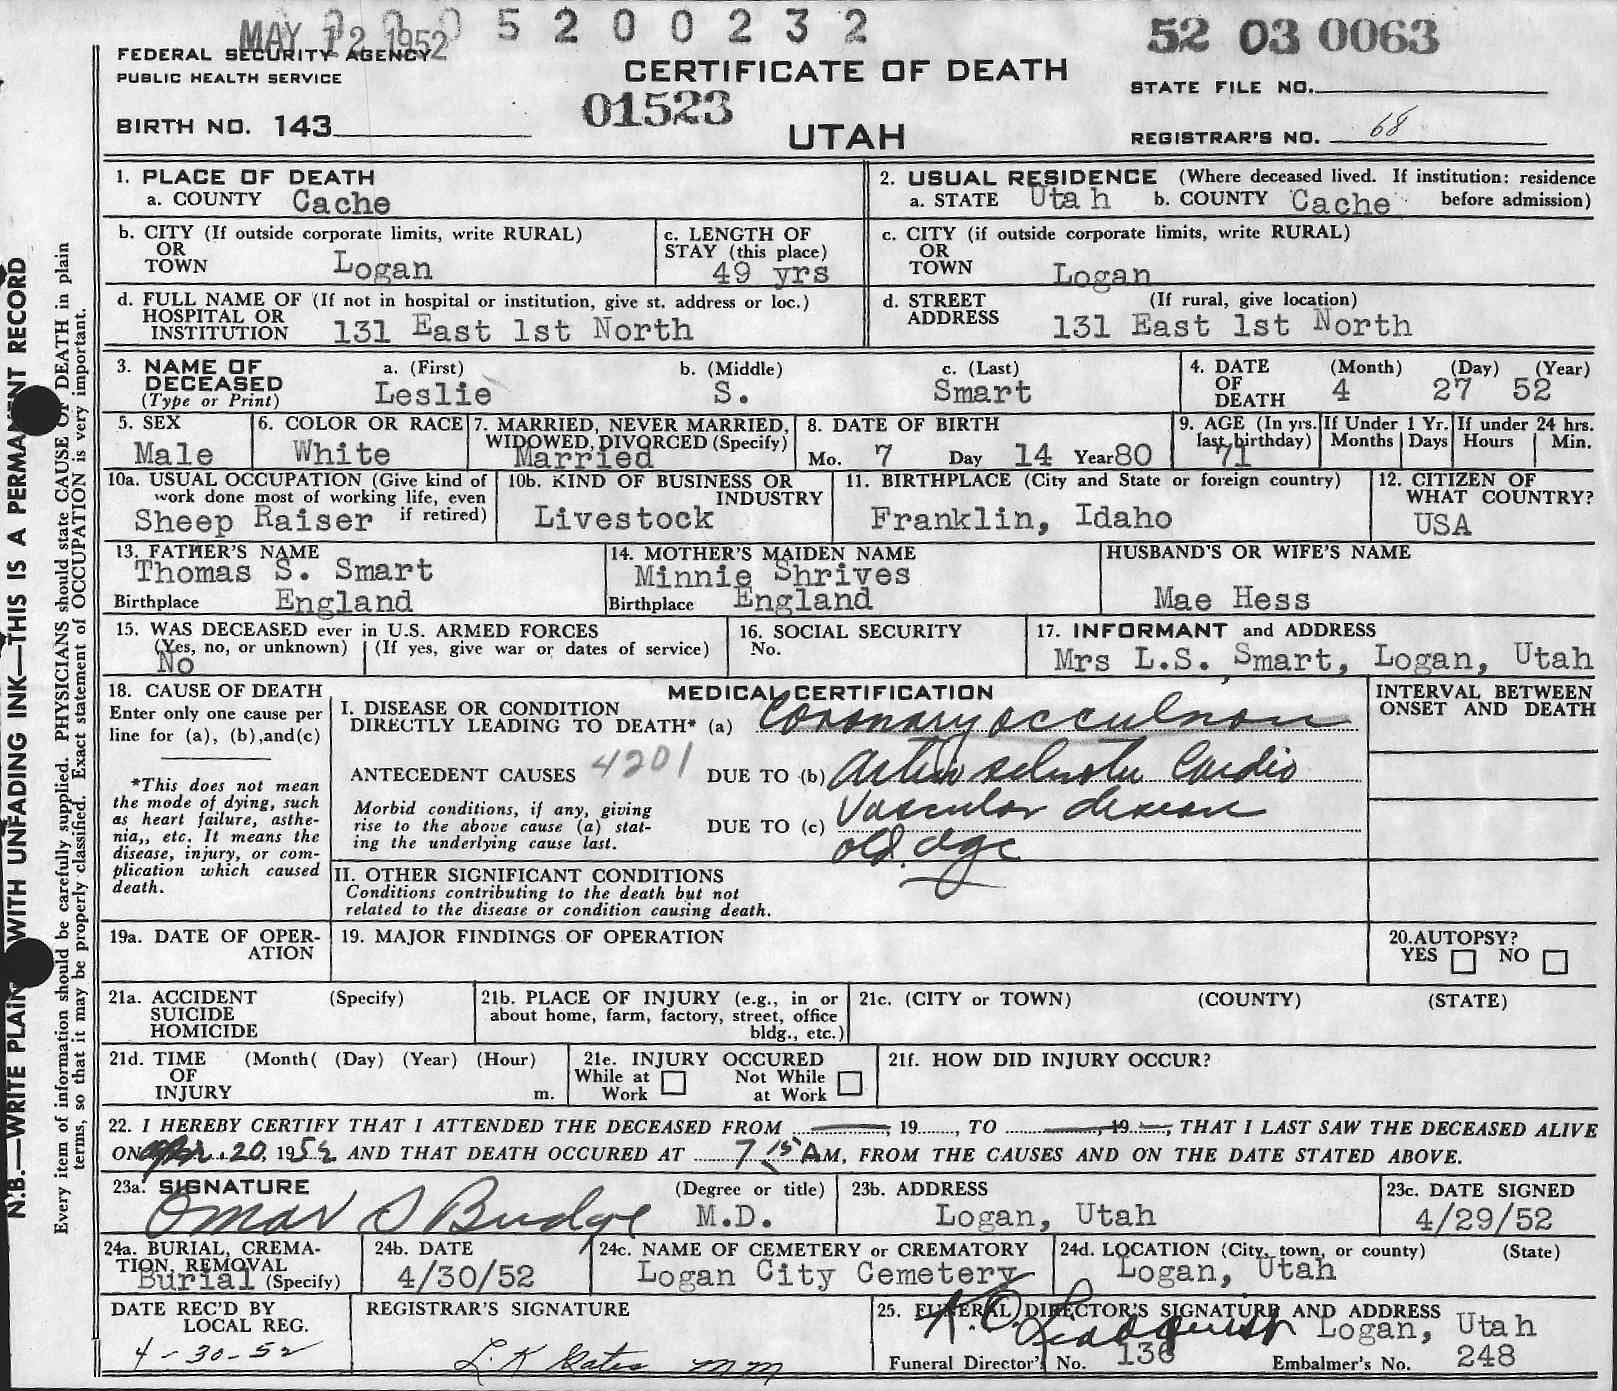 MAY 12 1952
5 2 0 0 2 3 2
52 03 0063
FEDERAL SECURITY AGENCY
PUBLIC HEALTH SERVICE
CERTIFICATE OF DEATH
STATE FILE NO.
01523
BIRTH NO. 143
UTAH
REGISTRAR'S NO. 68
1. PLACE OF DEATH
a. COUNTY Cache
2. USUAL RESIDENCE (Where deceased lived. If institution: residence
a. STATE Utah b. COUNTY Cache before admission)
b. CITY (If outside corporate limits, write RURAL)
OR
TOWN Logan
c. LENGTH OF
STAY (this place)
49 yrs
c. CITY (if outside corporate limits, write RURAL)
OR
TOWN Logan
d. FULL NAME OF (If not in hospital or institution, give st. address or loc.)
HOSPITAL OR
INSTITUTION 131 East 1st North
d. STREET (If rural, give location)
ADDRESS 131 East 1st North
3. NAME OF
DECEASED
(Type or Print)
a. (First) b. (Middle) c. (Last)
Leslie S. Smart
4. DATE (Month) (Day) (Year)
OF
DEATH 4 27 52
5. SEX
Male
6. COLOR OR RACE
White
7. MARRIED, NEVER MARRIED,
WIDOWED, DIVORCED (Specify)
Married
8. DATE OF BIRTH
Mo. 7 Day 14 Year 80
9. AGE (In yrs.
last birthday)
71
If Under 1 Yr.
Months Days
If under 24 hrs.
Hours Min.
10a. USUAL OCCUPATION (Give kind of
work done most of working life, even
Sheep Raiser if retired)
10b. KIND OF BUSINESS OR
INDUSTRY
Livestock
11. BIRTHPLACE (City and State or foreign country)
Franklin, Idaho
12. CITIZEN OF
WHAT COUNTRY?
USA
13. FATHER'S NAME
Thomas S. Smart
Birthplace England
14. MOTHER'S MAIDEN NAME
Minnie Shrives
Birthplace England
HUSBAND'S OR WIFE'S NAME
Mae Hess
15. WAS DECEASED ever in U.S. ARMED FORCES
(Yes, no, or unknown) (If yes, give war or dates of service)
No
16. SOCIAL SECURITY
No.
17. INFORMANT and ADDRESS
Mrs L.S. Smart, Logan, Utah
18. CAUSE OF DEATH
Enter only one cause per
line for (a), (b),and(c)
*This does not mean
the mode of dying, such
as heart failure, asthe-
nia,, etc. It means the
disease, injury, or com-
plication which caused
death.
MEDICAL CERTIFICATION
I. DISEASE OR CONDITION
DIRECTLY LEADING TO DEATH* (a) Coronary occulsion
ANTECEDENT CAUSES 4201 DUE TO (b) Arterio sclerotic Cardio
Morbid conditions, if any, giving
rise to the above cause (a) stat-
ing the underlying cause last.
Vascular disease
DUE TO (c)
old age
II. OTHER SIGNIFICANT CONDITIONS
Conditions contributing to the death but not
related to the disease or condition causing death.
INTERVAL BETWEEN
ONSET AND DEATH
19a. DATE OF OPER-
ATION
19. MAJOR FINDINGS OF OPERATION
20.AUTOPSY?
YES NO
21a. ACCIDENT (Specify)
SUICIDE
HOMICIDE
21b. PLACE OF INJURY (e.g., in or
about home, farm, factory, street, office
bldg., etc.)
21c. (CITY or TOWN) (COUNTY) (STATE)
21d. TIME (Month( (Day) (Year) (Hour)
OF
INJURY m.
21e. INJURY OCCURED
While at Not While
Work at Work
21f. HOW DID INJURY OCCUR?
22. I HEREBY CERTIFY THAT I ATTENDED THE DECEASED FROM , 19 , TO , 19 , THAT I LAST SAW THE DECEASED ALIVE
ON Apr. 20, 1952 AND THAT DEATH OCCURED AT 7 15 AM, FROM THE CAUSES AND ON THE DATE STATED ABOVE.
23a. SIGNATURE (Degree or title)
Omar S Budge M.D.
23b. ADDRESS
Logan, Utah
23c. DATE SIGNED
4/29/52
24a. BURIAL, CREMA-
TION, REMOVAL
Burial (Specify)
24b. DATE
4/30/52
24c. NAME OF CEMETERY or CREMATORY
Logan City Cemetery
24d. LOCATION (City, town, or county) (State)
Logan, Utah
DATE REC'D BY
LOCAL REG.
4-30-52
REGISTRAR'S SIGNATURE
25. FUNERAL DIRECTOR'S SIGNATURE AND ADDRESS
Logan, Utah
Funeral Director's No. 136 Embalmer's No. 248
N.B.—WRITE PLAIN WITH UNFADING INK—THIS IS A PERMANENT RECORD
Every item of information should be carefully supplied. PHYSICIANS should state CAUSE OF DEATH in plain
terms, so that it may be properly classified. Exact statement of OCCUPATION is very important.